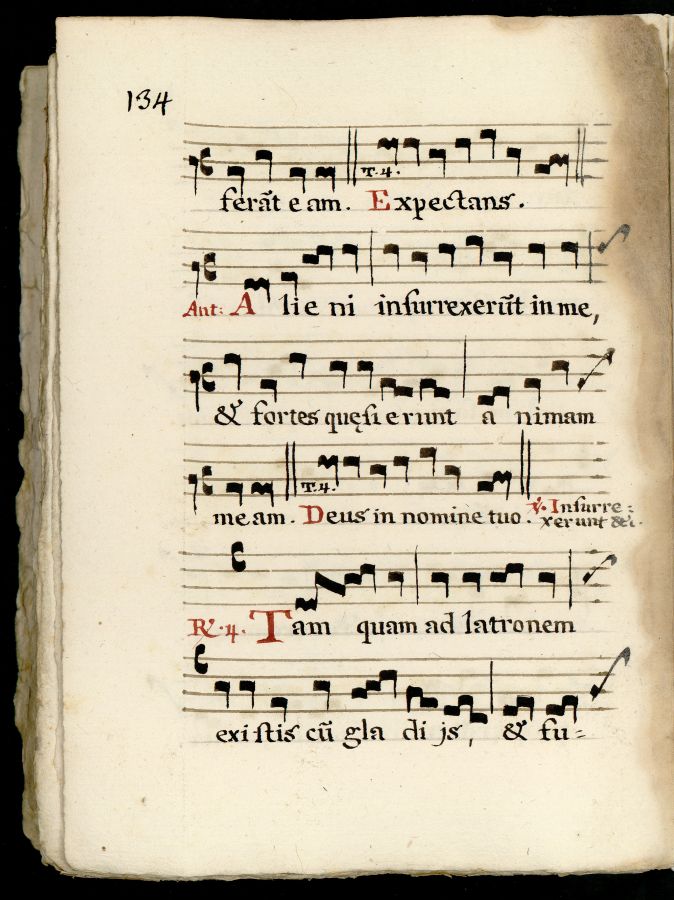 134
T. 4.
ferãt eam. Expectans.
Ant: Alieni inſurrexerũt in me,
& fortes quęſierunt animam
T. 4.
meam. Deus in nomine tuo. ℣. Inſurre=
xerunt &c.
℟. 4. Tam quam ad latronem
existis cũ gladijs, & fu=